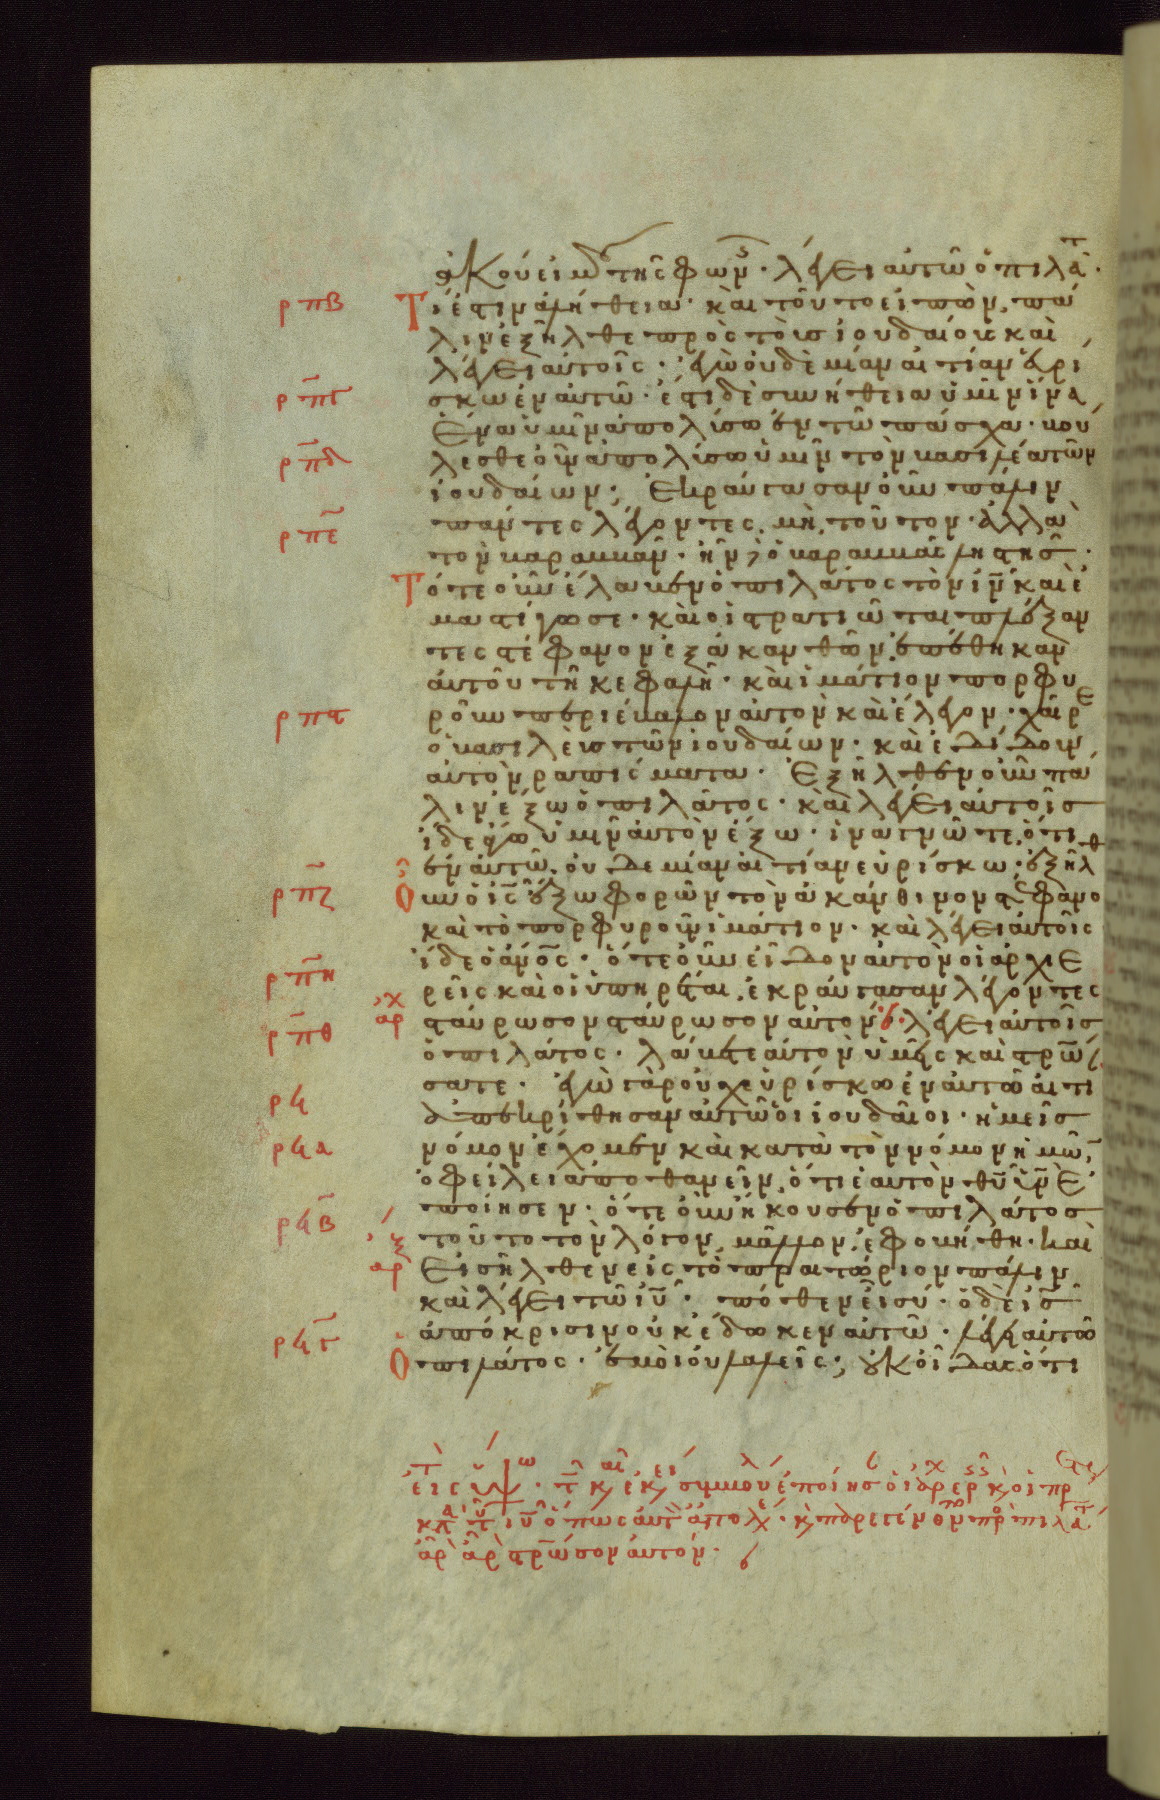 ἀκούει μου τῆς φων. λέγει αὐτῶ ὁ πιλατ.
ρπβ Τί ἐστιν ἀλήθεια. καὶ τοῦτο εἰπὼν, πά
λιν ἐξῆλθε πρὸς τοὺς ἰουδαίους καὶ
λέγει αὐτοῖς. ἐγὼ οὐδὲ μίαν αἰτίαν εὑρί
ρπγ σκω ἐν αὐτῶ. ἔστι δὲ συνήθεια ὑμῖν ἵνα
ἕνα ὑμῖν ἀπολύσω ἐν τῶ πάσχα. βού
ρπδ λεσθε οὖν ἀπολύσω ὑμῖν τὸν βασιλέα τῶν
ἰουδαίων; Ἐκραύγασαν οὖν πάλιν
ρπε πάντες λέγοντες, μὴ τοῦτον. ἀλλὰ
τὸν βαραββᾶν. ἦν δὲ ὁ βαραββᾶς ληστής.
Τότε οὖν ἔλαβεν ὁ πιλάτος τὸν ιν καὶ ἐ
μαστίγωσε. καὶ οἱ στρατιῶται πλέξαν
τες στέφανον ἐξ ἀκανθῶν, ἐπέθηκαν
αὐτοῦ τῆ κεφαλῆ. καὶ ἱμάτιον πορφυ
ρπς ροῦν περιέβαλον αὐτὸν καὶ ἔλεγον. χαῖρε
ὁ βασιλεὺς τῶν ἰουδαίων. καὶ ἐδίδουν
αὐτὸν ραπίσματα. Ἐξῆλθεν οὖν πά
λιν ἔξω ὁ πιλάτος. καὶ λέγει αὐτοῖς
ἴδε ἄγω ὑμῖν αὐτὸν ἔξω. ἵνα γνῶτε, ὅτι
ἐν αὐτῶ, οὐδεμίαν αἰτίαν εὑρίσκω. ἐξῆλθ
ρπζ Οὖν ὁ ις ἔξω φορῶν τὸν ἀκάνθινον στέφανο
καὶ τὸ πορφυροῦν ἱμάτιον. καὶ λέγει αὐτοῖς
ἴδε ὁ ανος. ὅτε οὖν εἶδον αὐτὸν οἱ ἀρχιε
ρπη ρεῖς καὶ οἱ ὑπηρέται, ἐκραύγασαν λέγοντες
ρπθ αρχ σταύρωσον σταύρωσον αὐτόν. λέγει αὐτοῖς
ὁ πιλάτος. λάβετε αὐτὸν ὑμεῖς καὶ στρω
σατε. ἐγὼ γὰρ οὐχ εὑρίσκω ἐν αὐτῶ αἰτί
ρϟ ἀπεκρίθησαν αὐτῶ οἱ ἰουδαῖοι. ἡμεῖς
ρϟα νόμον ἔχομεν καὶ κατὰ τὸν νόμον ἡμῶν,
ὀφείλει ἀποθανεῖν, ὅτι ἑαυτὸν θυ υν ἐ
ρϟβ ποίησεν. ὅτε οὖν ἤκουσεν ὁ πιλάτος
τοῦτο τὸν λόγον, μᾶλλον ἐφοβήθη. καὶ
αρξ Εἰσῆλθεν εἰς τὸ πραιτώριον πάλιν
καὶ λέγει τῶ ιυ. πόθεν εἶ σύ. ὁ δὲ ις
ρϟγ ἀπόκρισιν οὐκ ἔδωκεν αὐτῶ. λέγει αὐτῶ
Ὁ πιλάτος. ἐμοὶ οὐ λαλεῖς; οὐκ οἶδας ὅτι